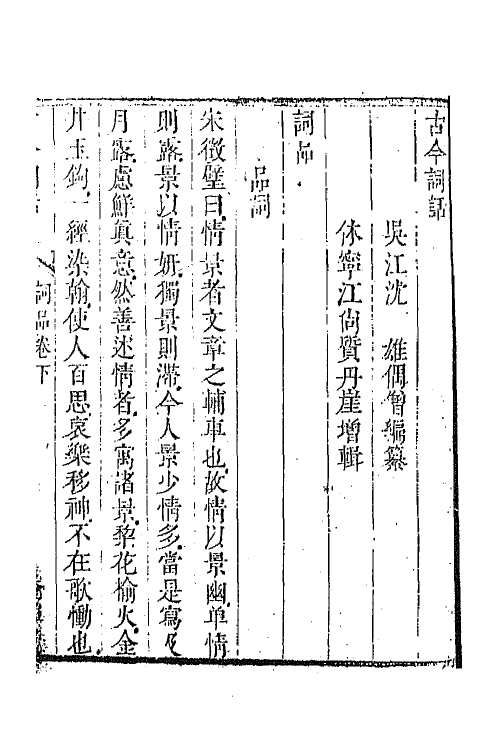 古今詞話
吳江沈　雄偶僧編纂
休寧江尙質丹崖增輯
詞品
品詞
宋徵璧曰情景者文章之輔車也故情以景幽單情
則露景以情妍獨景則滯今人景少情多當是寫及
月露慮鮮眞意然善述情者多寓諸景梨花榆火金
井玉鉤一經染翰使人百思哀樂移神不在歌慟也
詞品卷下